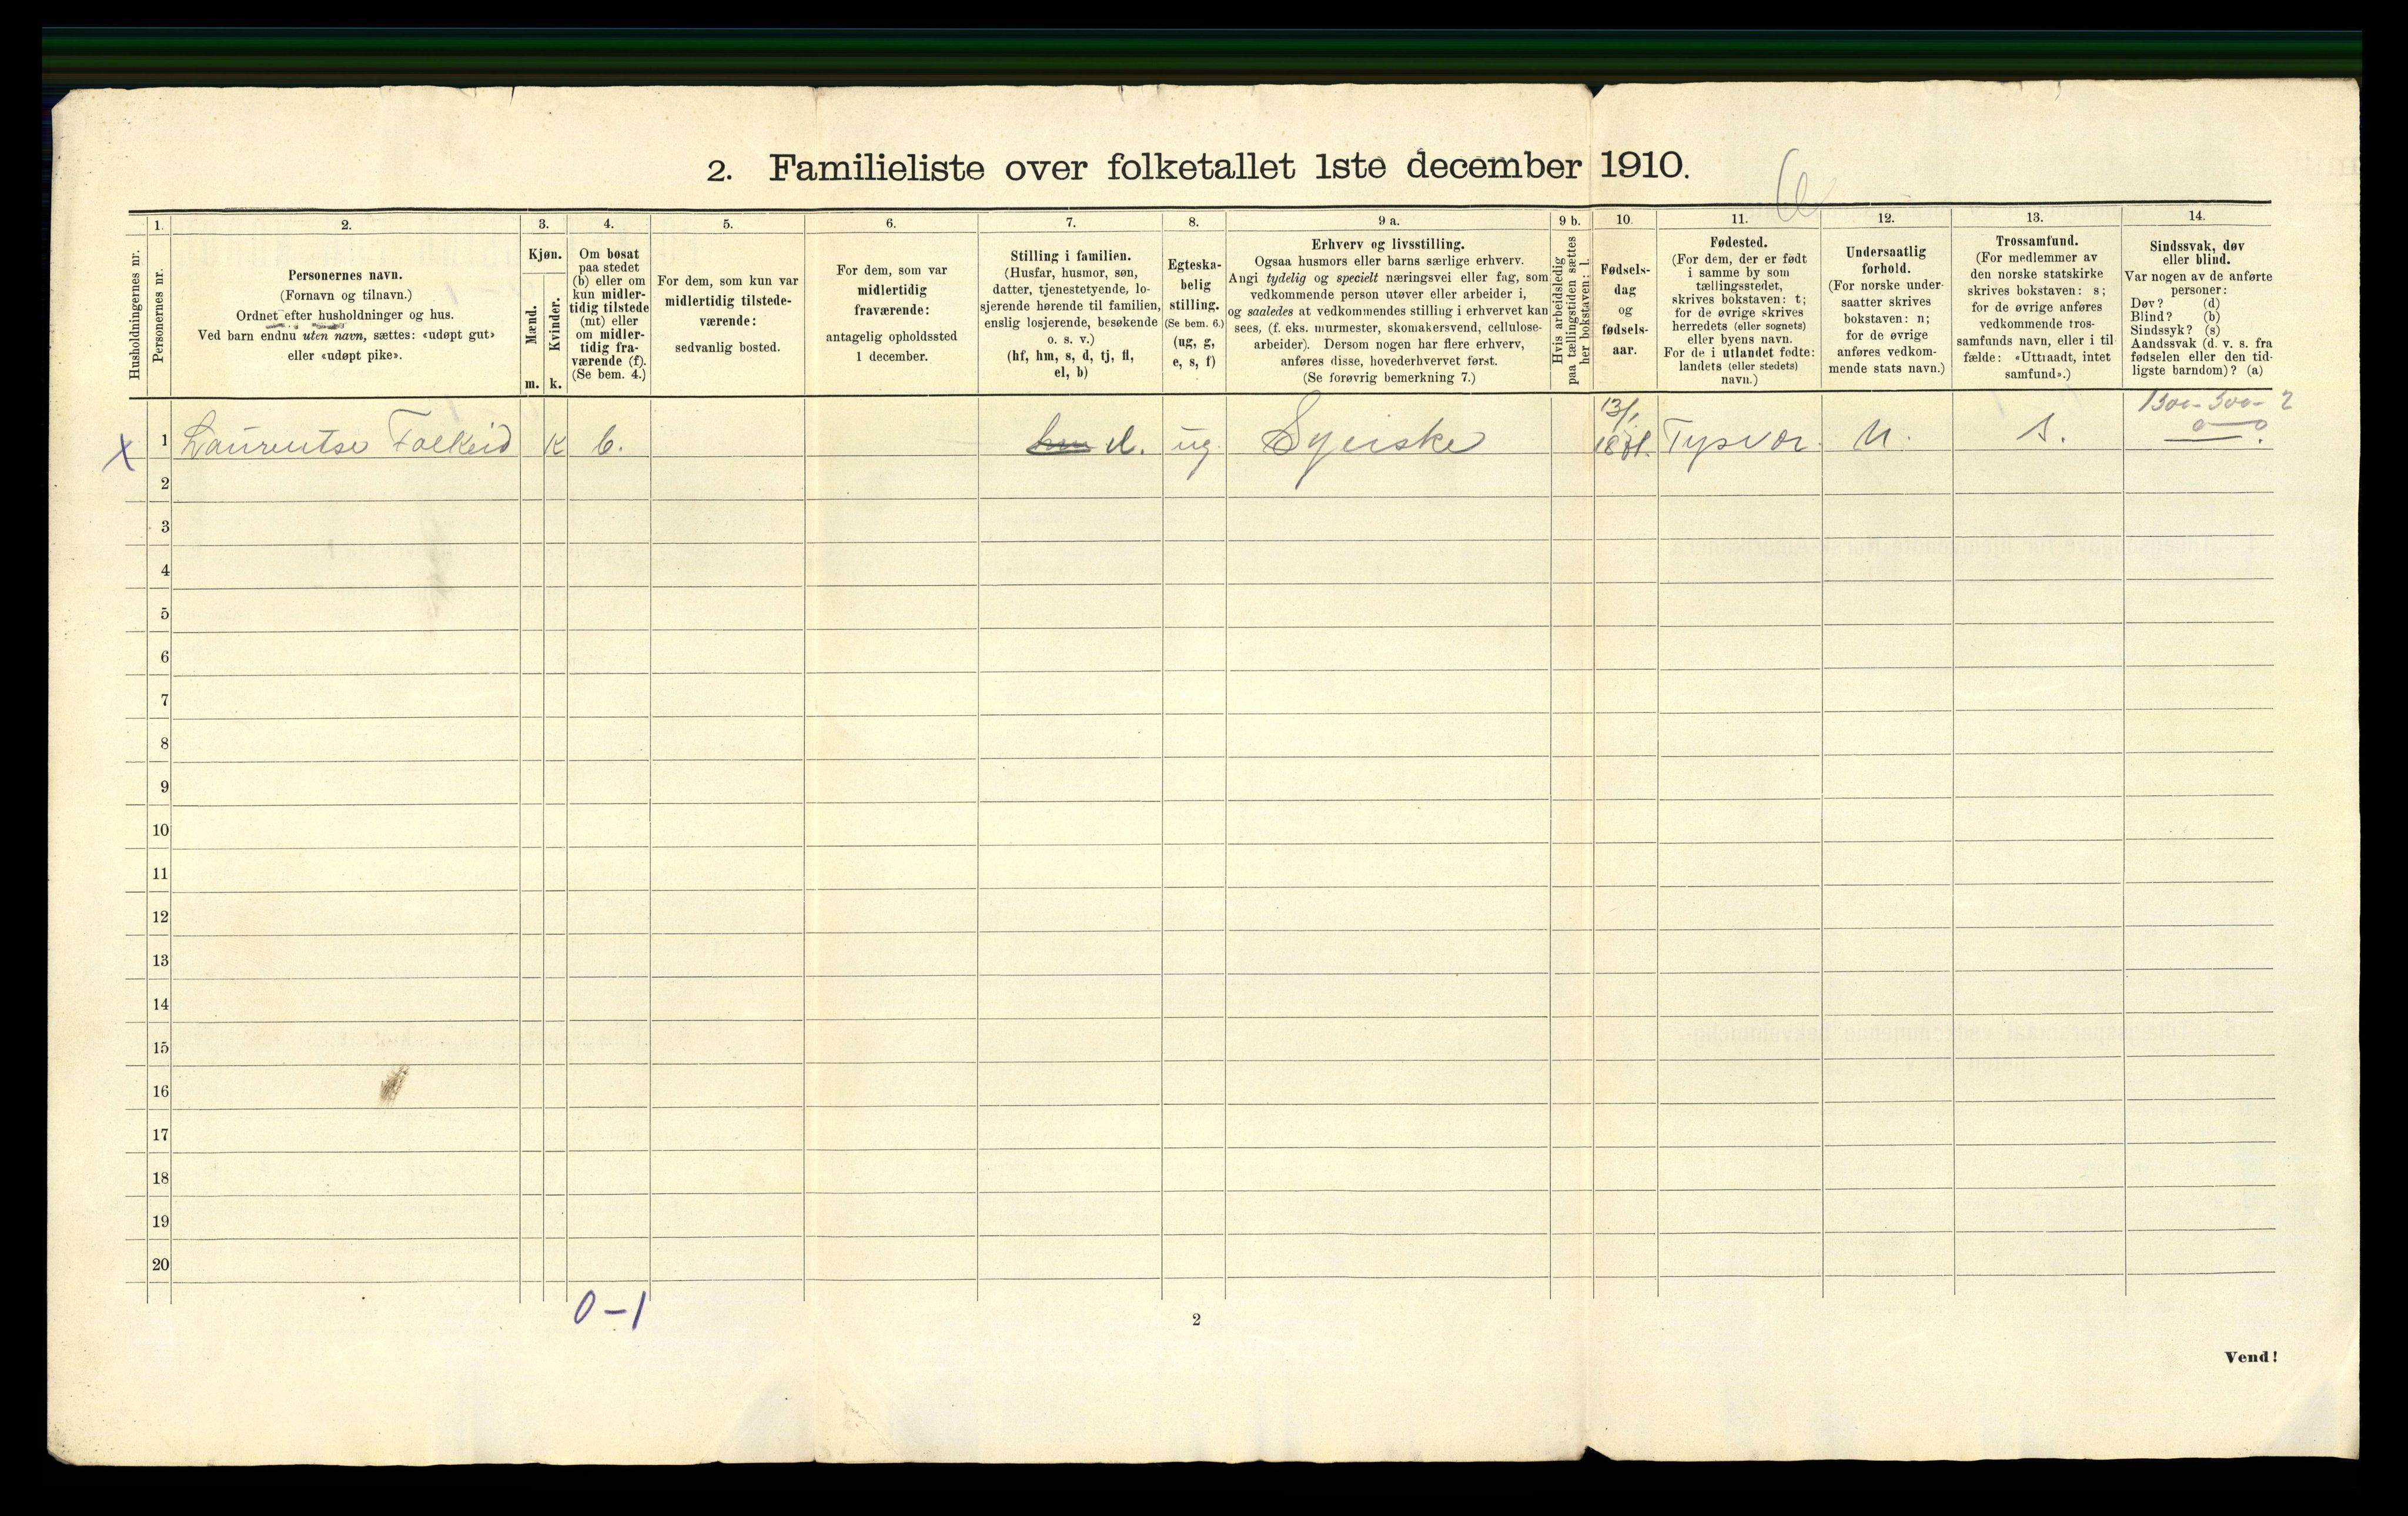 2. Familieliste over folketallet 1ste december 1910.
Husholdningernes nr.
1.
Personernes nr.
2.
Personernes navn.
(Fornavn og tilnavn.)
Ordnet efter husholdninger og hus.
Ved barn endnu uten navn, sættes: «udøpt gut»
eller «udøpt pike».
3.
Kjøn.
Mænd.
Kvinder.
m. k.
4.
Om bosat
paa stedet
(b) eller om
kun midler-
tidig tilstede
(mt) eller
om midler-
tidig fra-
værende (f).
(Se bem. 4.)
5.
For dem, som kun var
midlertidig tilstede-
værende:
sedvanlig bosted.
6.
For dem, som var
midlertidig
fraværende:
antagelig opholdssted
1 december.
7.
Stilling i familien.
(Husfar, husmor, søn,
datter, tjenestetyende, lo-
sjerende hørende til familien,
enslig losjerende, besøkende
o. s. v.)
(hf, hm, s, d, tj, fl,
el, b)
8.
Egteska-
belig
stilling.
(Se bem. 6.)
(ug, g,
e, s, f)
9 a.
Erhverv og livsstilling.
Ogsaa husmors eller barns særlige erhverv.
Angi tydelig og specielt næringsvei eller fag, som
vedkommende person utøver eller arbeider i,
og saaledes at vedkommendes stilling i erhvervet kan
sees, (f. eks. murmester, skomakersvend, cellulose-
arbeider). Dersom nogen har flere erhverv,
anføres disse, hovederhvervet først.
(Se forøvrig bemerkning 7.)
9 b.
Hvis arbeidsledig
paa tællingstiden sættes
her bokstaven: l.
10.
Fødsels-
dag
og
fødsels-
aar.
11.
Fødested.
(For dem, der er født
i samme by som
tællingsstedet,
skrives bokstaven: t;
for de øvrige skrives
herredets (eller sognets)
eller byens navn.
For de i utlandet fødte:
landets (eller stedets)
navn.)
12.
Undersaatlig
forhold.
(For norske under-
saatter skrives
bokstaven: n;
for de øvrige
anføres vedkom-
mende stats navn.)
13.
Trossamfund.
(For medlemmer av
den norske statskirke
skrives bokstaven: s;
for de øvrige anføres
vedkommende tros-
samfunds navn, eller i til-
fælde: «Uttraadt, intet
samfund».)
14.
Sindssvak, døv
eller blind.
Var nogen av de anførte
personer:
Døv? (d)
Blind? (b)
Sindssyk? (s)
Aandssvak (d. v. s. fra
fødselen eller den tid-
ligste barndom)? (a)
1300-300-2
x 1 Laurentse Falkeid K b. d. ug. Syerske 13/1 Tysvær. n. s.
2
3
4
5
6
7
8
9
10
11
12
13
14
15
16
17
18
19
20
0-1
2
Vend!